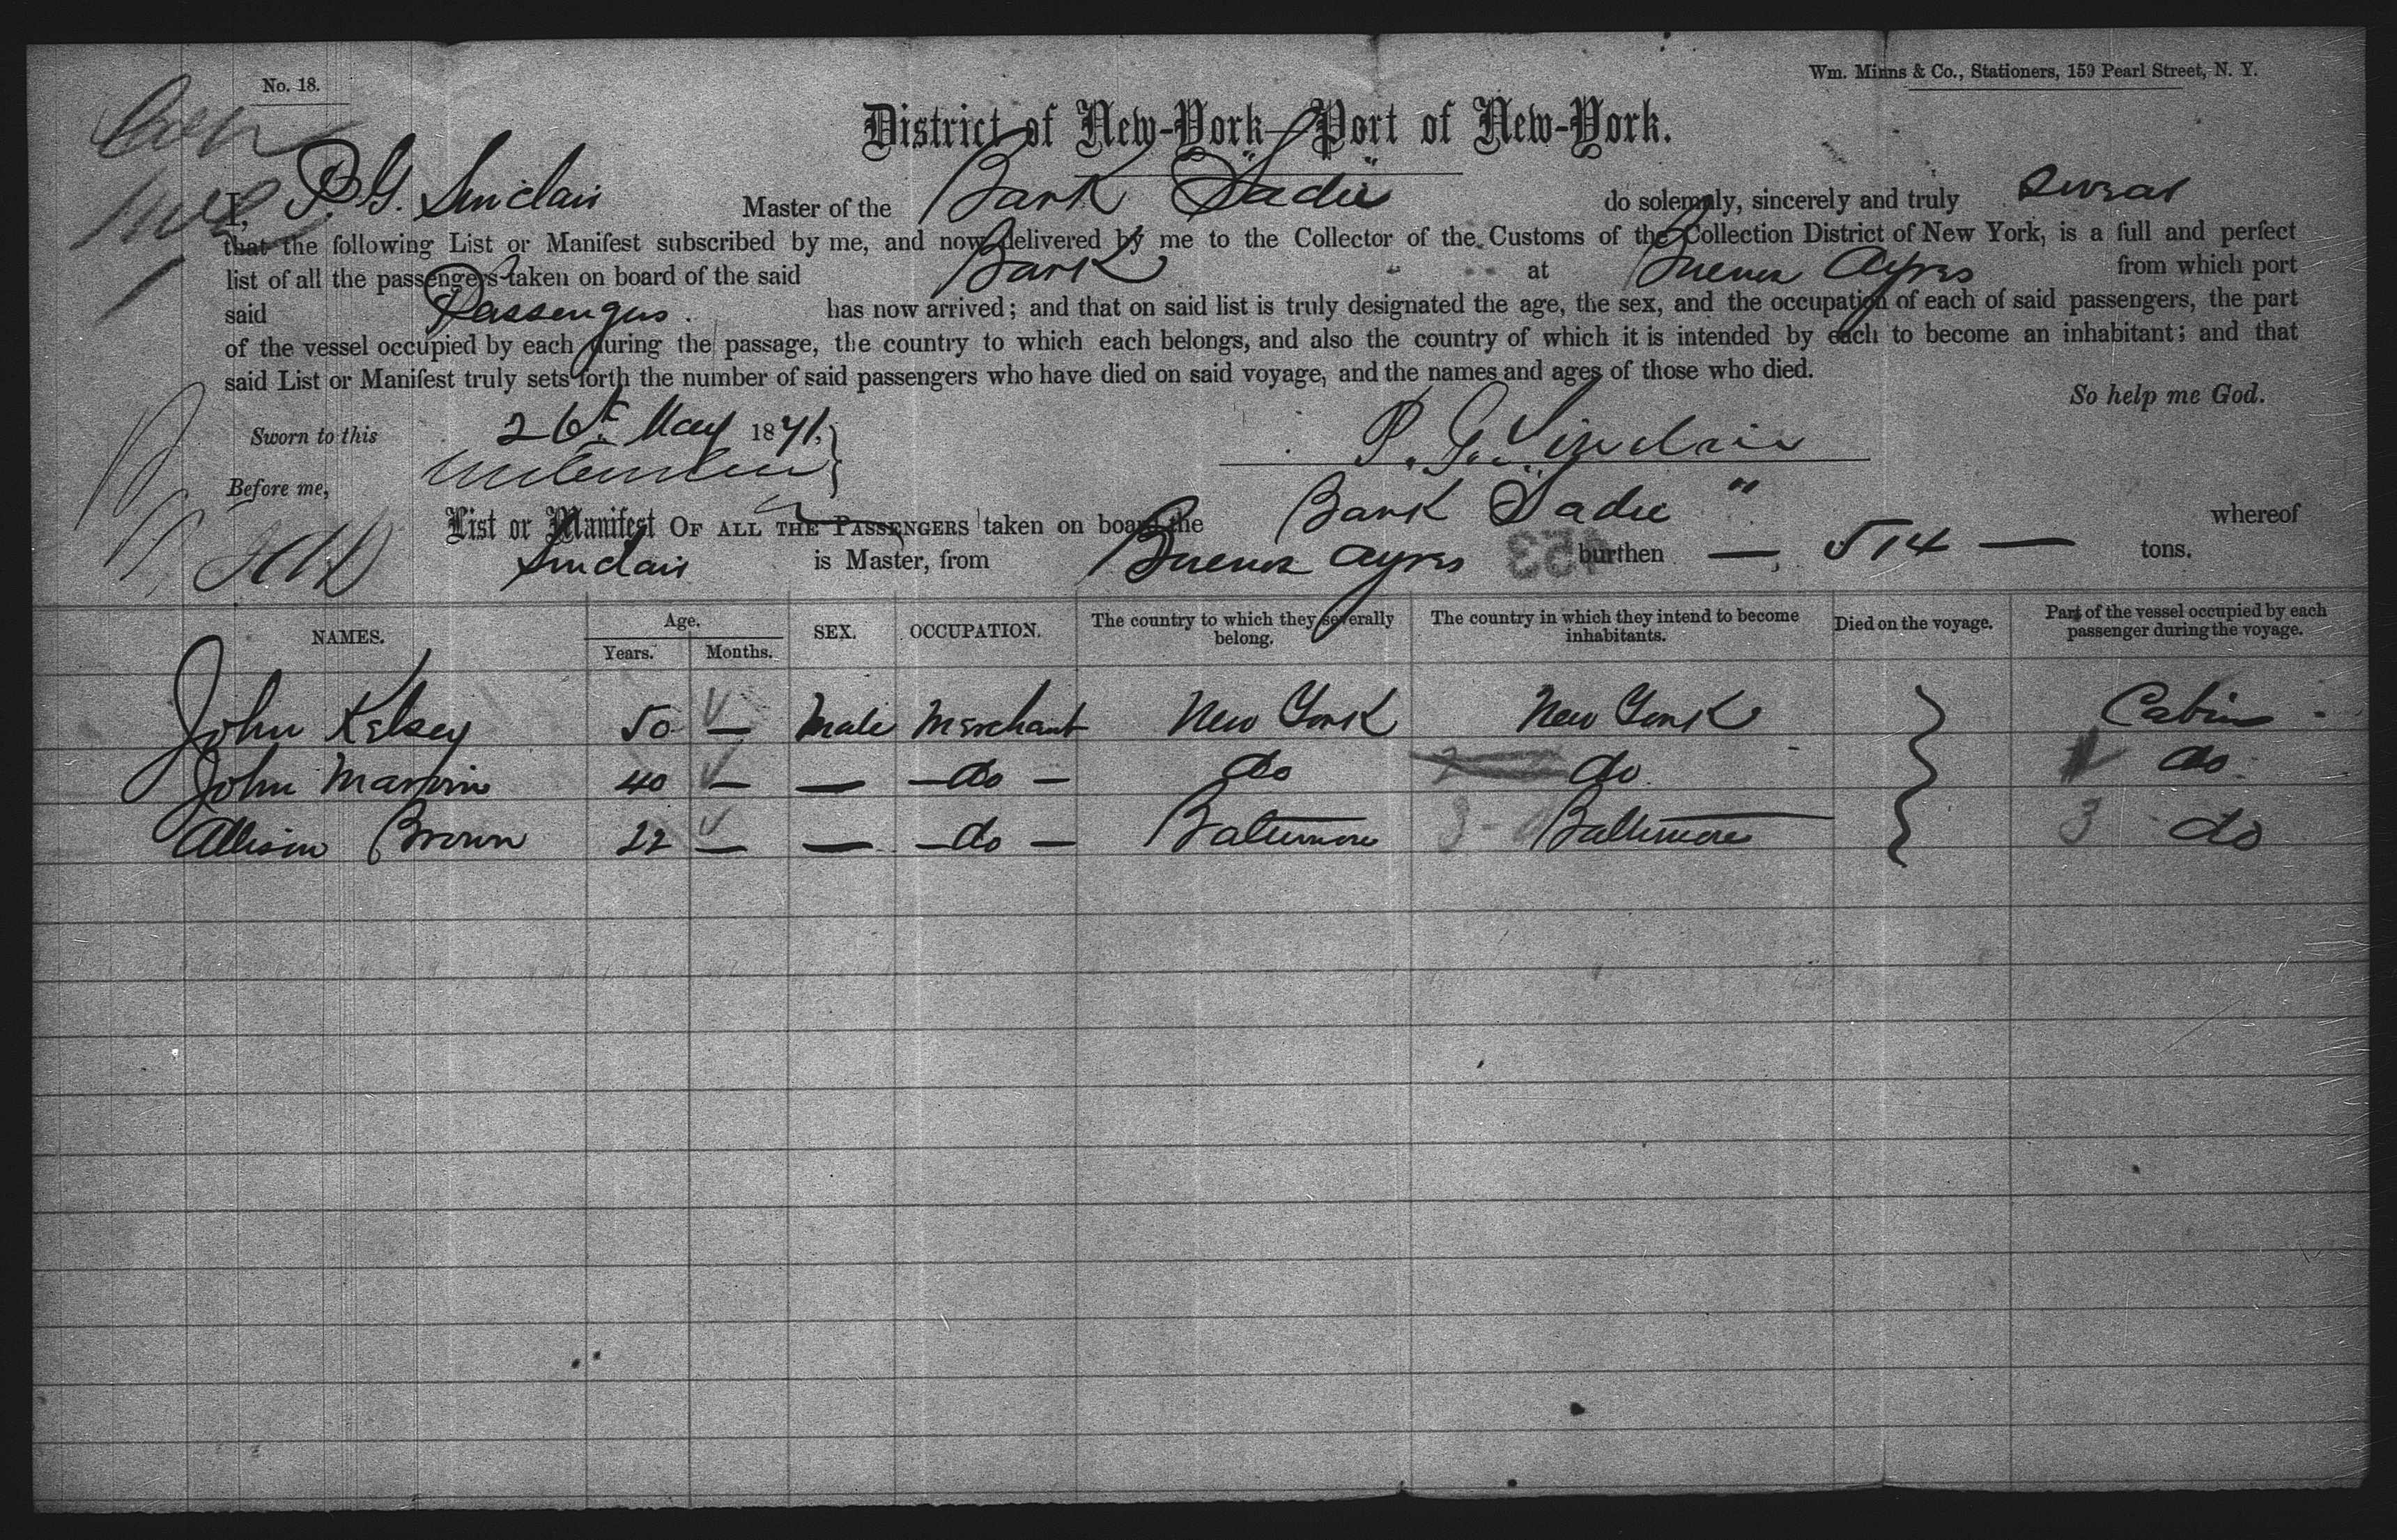 No. 18.
Wm. Minns & Co., Stationers, 159 Pearl Street, N. Y.
District of New-York—Port of New-York.
I, P. G. Sinclair Master of the Bark "Sadie" do solemnly, sincerely and truly swear
that the following List or Manifest subscribed by me, and now delivered by me to the Collector of the Customs of the Collection District of New York, is a full and perfect
list of all the passengers taken on board of the said Bark at Buenos Ayres from which port
said Passengers. has now arrived; and that on said list is truly designated the age, the sex, and the occupation of each of said passengers, the part
of the vessel occupied by each during the passage, the country to which each belongs, and also the country of which it is intended by each to become an inhabitant; and that
said List or Manifest truly sets forth the number of said passengers who have died on said voyage, and the names and ages of those who died.
So help me God.
Sworn to this 26th May 1871.
P. G. Sinclair
Before me,
List or Manifest OF ALL THE PASSENGERS taken on board the Bark "Sadie" whereof
Sinclair is Master, from Buenos Ayres burthen — 514 — tons.
NAMES. Age. Years. Months. SEX. OCCUPATION. The country to which they severally belong. The country in which they intend to become inhabitants. Died on the voyage. Part of the vessel occupied by each passenger during the voyage.
John Kelsey 50 — Male Merchant New York New York Cabin
John 40 — — — do — do do do
Allison Brown 22 — — — do — Baltimore Baltimore 3 do